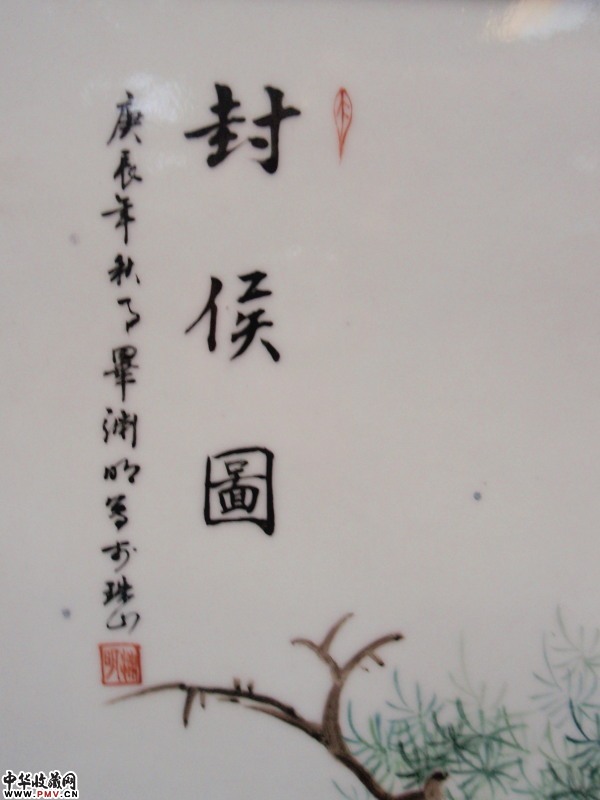 封侯圖
庚辰年秋月畢淵明寫於珠山
中华收藏网
www.PMV.CN